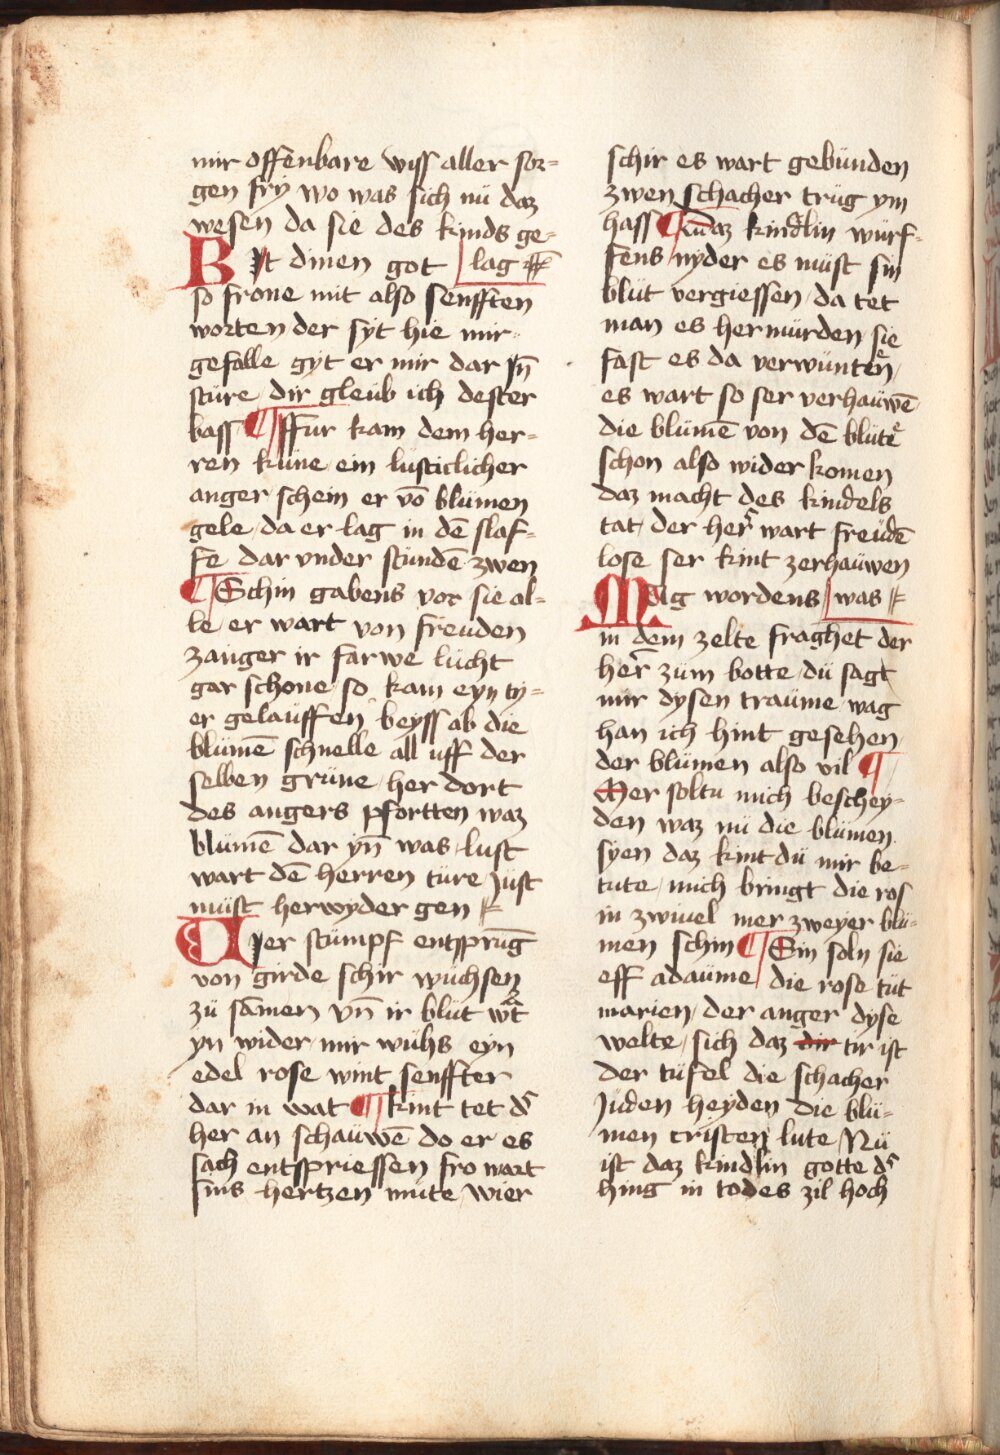 mir offenbare wiss aller sor=
gen fry wo was sich nü daz
wesen da sie des kinds ge-
Byt dinen got lag
so frone mit also senfften
worten der syt hie mir
gefalle gyt er mir dar yn̄
stüre dir gleüb ich dester
bass ¶ ffur kam dem her=
ren küne ein lusticlicher
anger schein er vō blümen
gele da er lag in dē slaf=
fe dar vnder stündē zwen
¶ Schin gabens vor sie al=
le er wart von freuden
zanger ir farwe lücht
gar schone so kam eyn ty=
er gelauffen beyss ab die
blümē schnelle all uff der
selben grüne her dort
des angers pfortten waz
blümē dar yn̄ was lust
wart dē herren türe Just
müst herwyder gen
Uier stümpf entsprūg
von girde schir wüchsen
zü sāmen vn̄ ir blüt wt
yn wider mir wühs eyn
edel rose wint senffter
dar in wat ¶ kint tet d
her an schaüwē do er es
sach entspriessen fro wart
sins hertzen müte wier
schir es wart gebünden
zwen schacher trüg ym
hass ¶ vn̄ daz kindlin würf-
fens nyder es müst sin
blüt vergiessen da tet
man es hermürden sie
fast es da verwünten
es wart so ser verhaüwē
die blümē von dē blüte
schon also wider komen
daz macht des kindels
tat der her wart freüdē
lose ser kint zerhaüwen
Mag wordens was
in dem zelte fraghet der
her zum botte dü sagt
mir dysen traüme wag
han ich hint gesehen
der blümen also vil ¶
Mer soltu mich beschey-
den waz nü die blümen
syen daz kint dü mir be-
tute mich bringt die ros
in zwiuel mer zweyer blü-
men schin ¶ Ein soln sie
eff adaüme die rose tüt
marien der anger dyse
welte sich daz dir tir ist
der tüfel die schacher
Jüden heyden die blü-
men cristen lute Nü
ist daz kindlin gotte d
hing in todes zil hoch